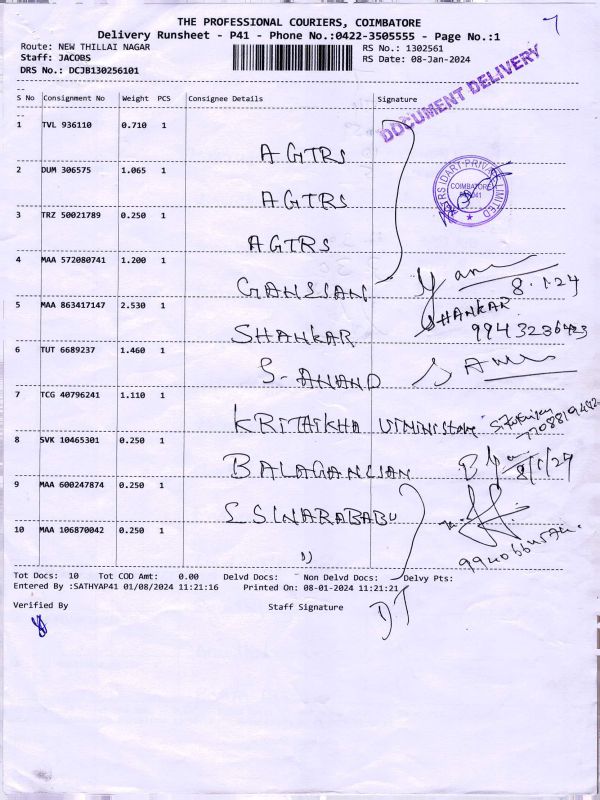 THE PROFESSIONAL COURIERS, COIMBATORE
Delivery Runsheet - P41 - Phone No.:0422-3505555 - Page No.:1
Route: NEW THILLAI NAGAR RS No.: 1302561
Staff: JACOBS RS Date: 08-Jan-2024
DRS No.: DCJB130256101
DOCUMENT DELIVERY
S No Consignment No Weight PCS Consignee Details Signature
1 TVL 936110 0.710 1
AGTRS
2 DUM 306575 1.065 1
AGTRS
COIMBATORE
3 TRZ 50021789 0.250 1
AGTRS
4 MAA 572080741 1.200 1
GANSSAN 8.1.24
5 MAA 863417147 2.530 1
SHANKAR SHANKAR
9943236423
6 TUT 6689237 1.460 1
S-ANAND
7 TCG 40796241 1.110 1
KRITHIKHA
8 SVK 10465301 0.250 1
BALAGANSSAN 8/1/24
9 MAA 600247874 0.250 1
10 MAA 106870042 0.250 1
Tot Docs: 10 Tot COD Amt: 0.00 Delvd Docs: Non Delvd Docs: Delvy Pts:
Entered By :SATHYAP41 01/08/2024 11:21:16 Printed On: 08-01-2024 11:21:21
Verified By Staff Signature
DJ